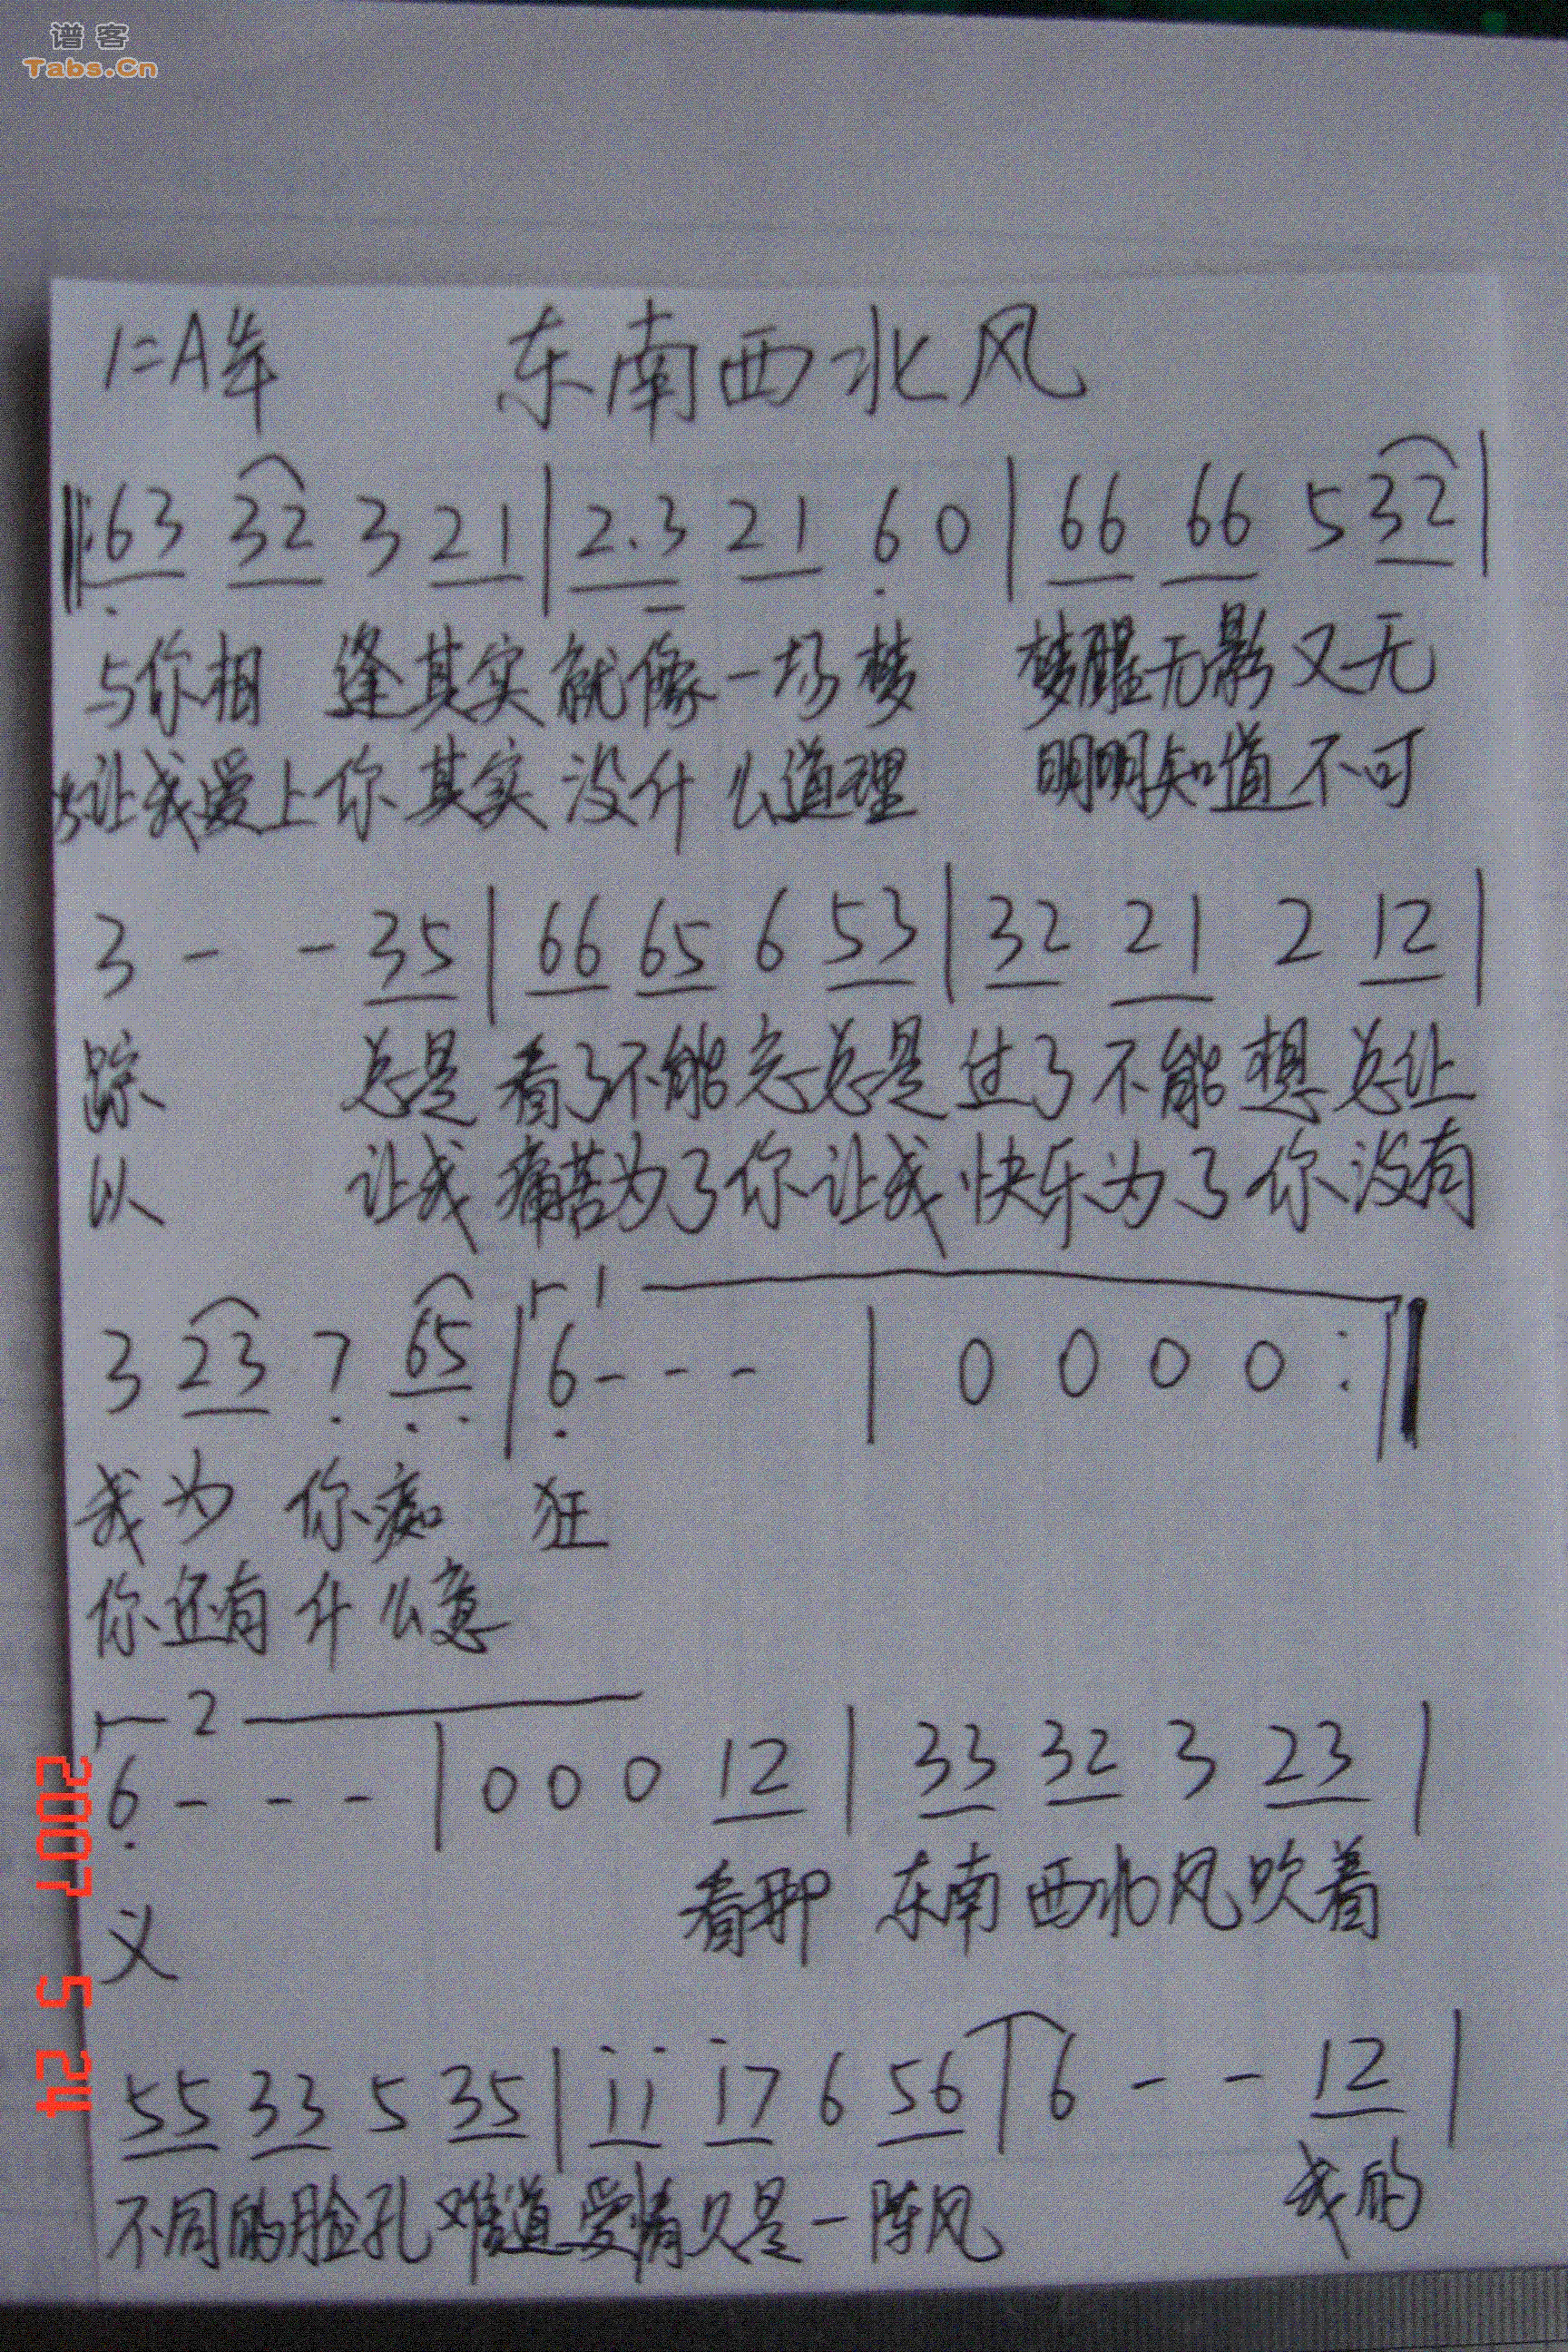 谱客
Tabs.Cn
1=A 4/4 东南西北风
‖:63 32 3 21|2.3 21 6 0|66 66 5 32|
与你相 逢其实就像一场梦 梦醒无影又无
让我爱上你其实没什么道理 明明知道不可
3 - - 35|66 65 6 53|32 21 2 12|
踪 总是看了不能忘总是过了不能想总让
以 让我痛苦为了你让我快乐为了你没有
3 23 7 65|6 - - -|0 0 0 0:‖
1
我为 你痴 狂
你还有什么意
2
6 - - -|0 0 0 12|33 32 3 23|
看那 东南西北风吹着
义
55 33 5 35|11 17 6 56|6 - - 12|
不同的脸孔难道爱情只是一阵风 我的
2007 5 24